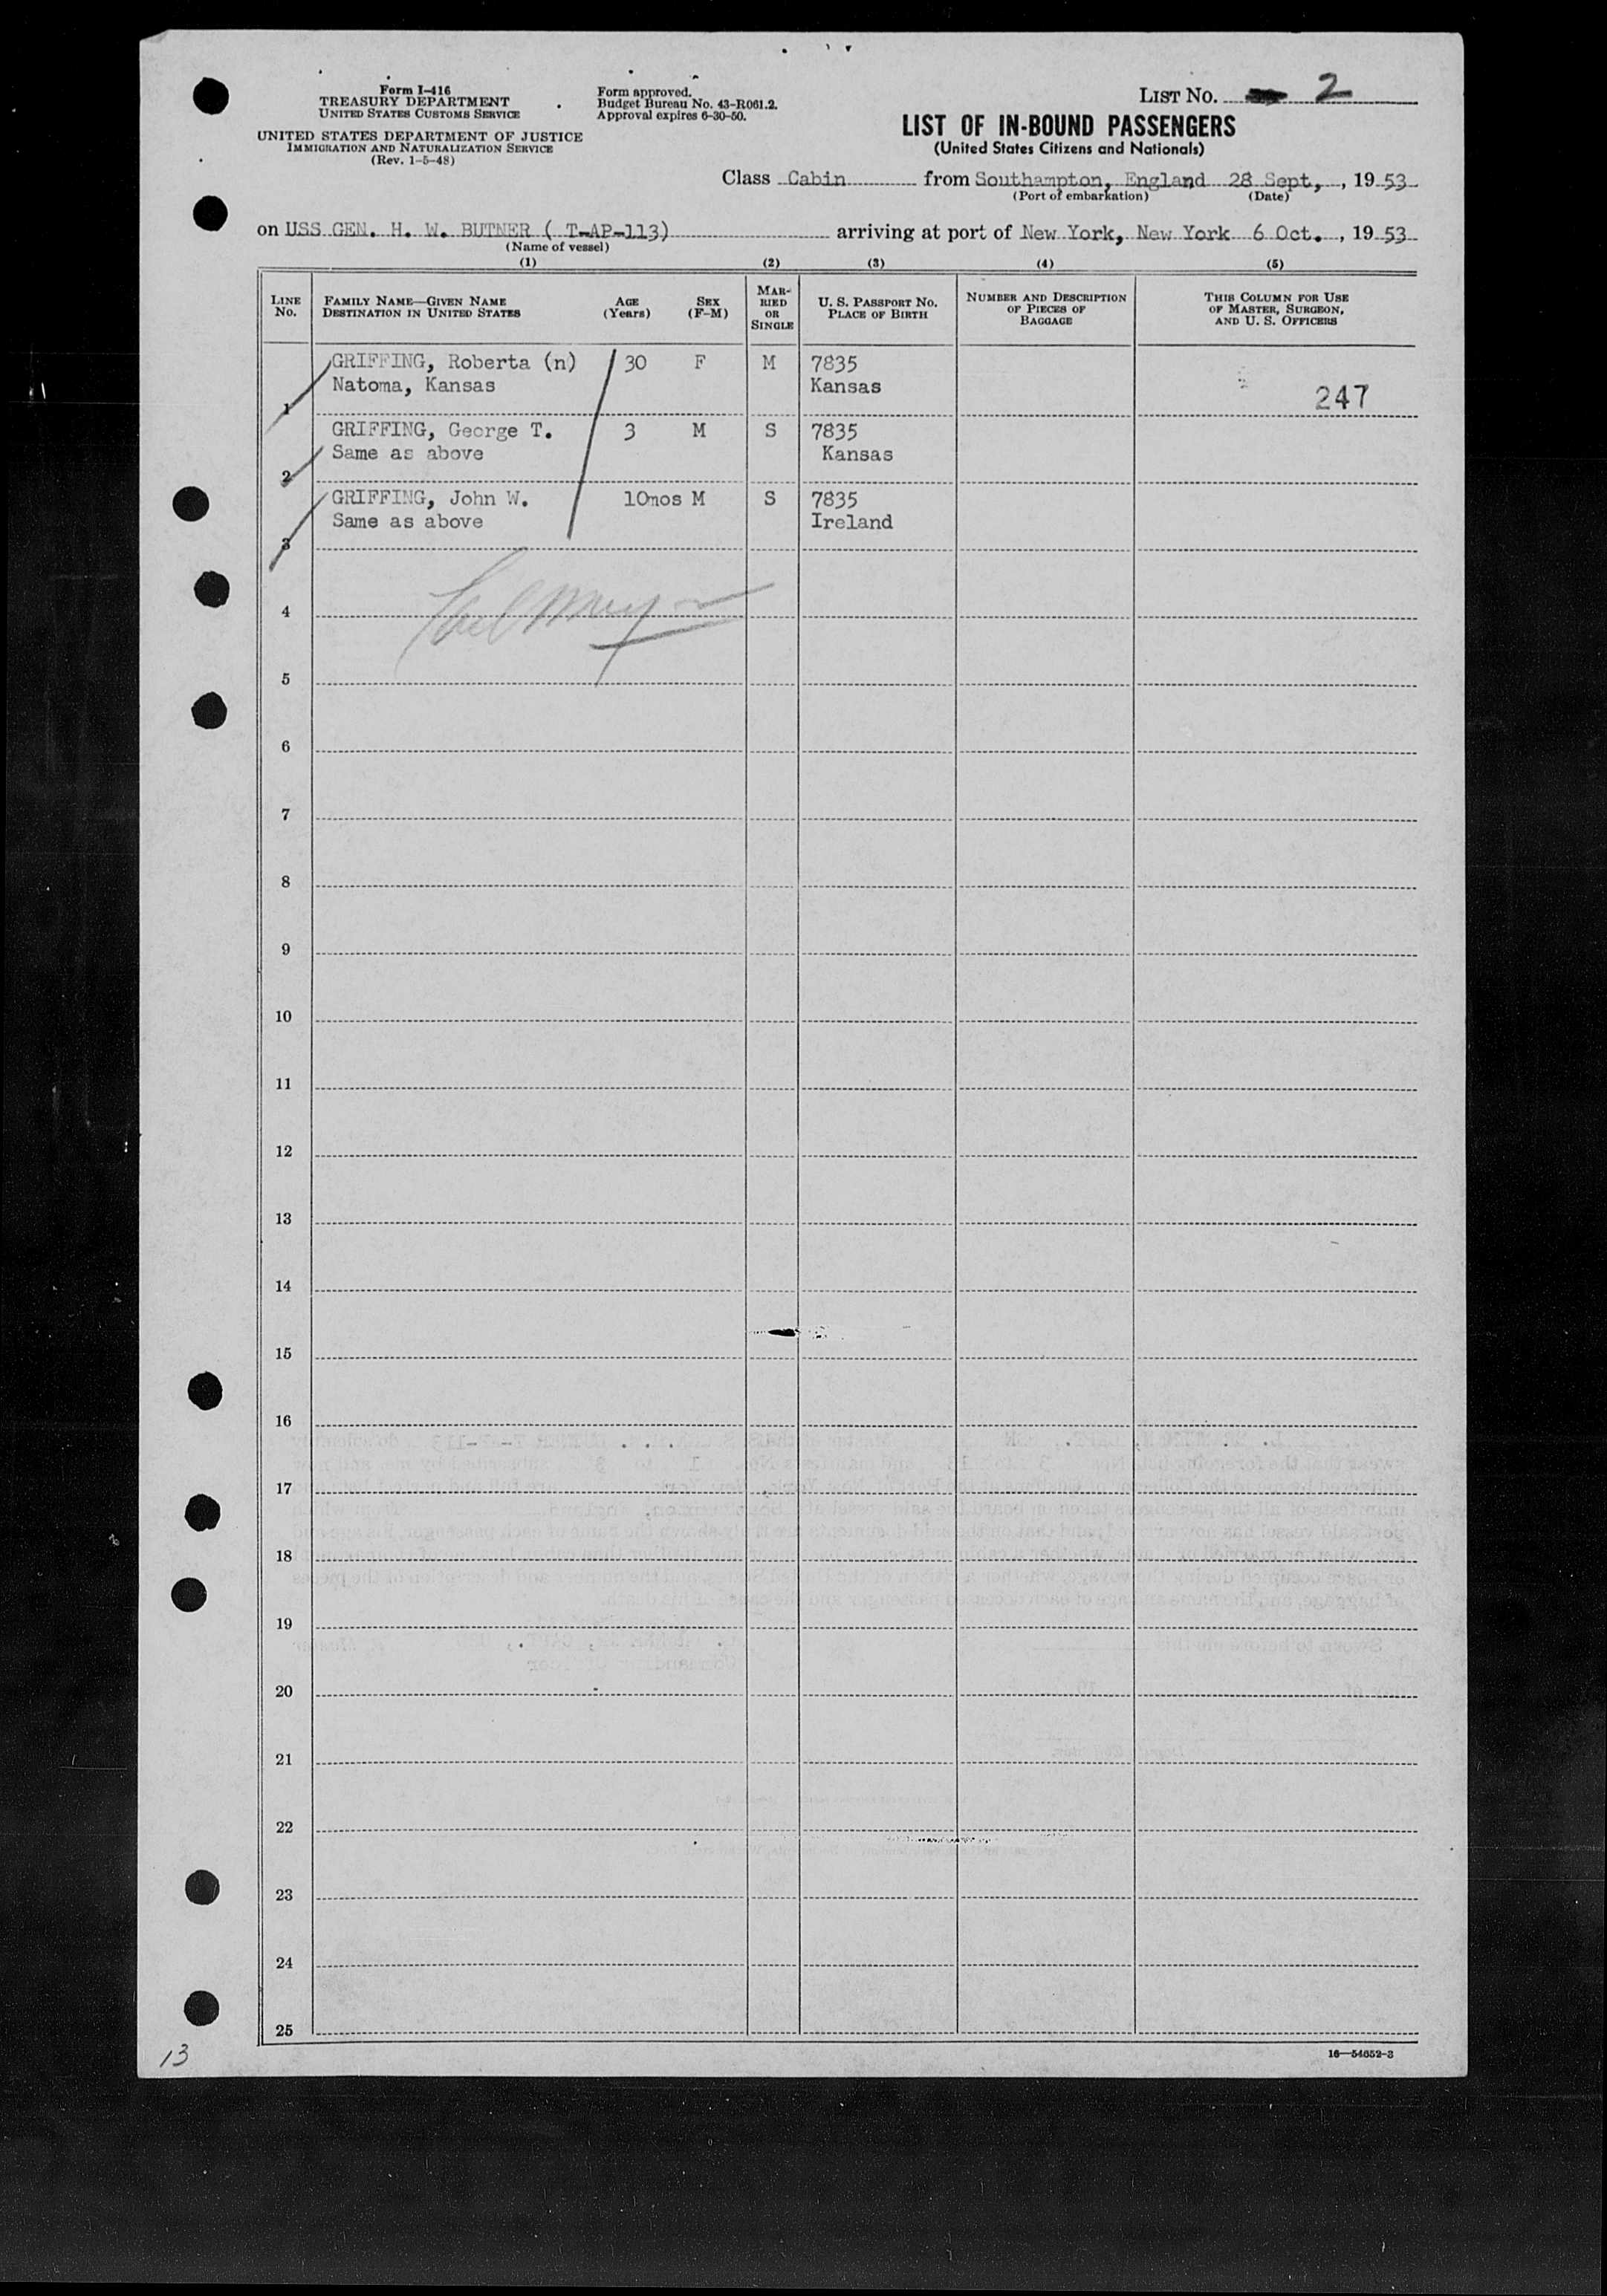 Form I-416
TREASURY DEPARTMENT
UNITED STATES CUSTOMS SERVICE
UNITED STATES DEPARTMENT OF JUSTICE
IMMIGRATION AND NATURALIZATION SERVICE
(Rev. 1-5-48)
Form approved.
Budget Bureau No. 43-R061.2.
Approval expires 6-30-50.
LIST NO. 2
LIST OF IN-BOUND PASSENGERS
(United States Citizens and Nationals)
Class Cabin from Southampton, England 28 Sept, , 19 53
(Port of embarkation) (Date)
on USS GEN. H. W. BUTNER ( T-AP-113) arriving at port of New York, New York 6 Oct. , 19 53
(Name of vessel)
(1) (2) (3) (4) (5)
LINE No. FAMILY NAME—GIVEN NAME DESTINATION IN UNITED STATES AGE (Years) SEX (F-M) MARRIED OR SINGLE U. S. PASSPORT NO. PLACE OF BIRTH NUMBER AND DESCRIPTION OF PIECES OF BAGGAGE THIS COLUMN FOR USE OF MASTER, SURGEON, AND U. S. OFFICERS
GRIFFING, Roberta (n) 30 F M 7835
Natoma, Kansas Kansas
1 247
GRIFFING, George T. 3 M S 7835
Same as above Kansas
2
GRIFFING, John W. 10mos M S 7835
Same as above Ireland
3
4
5
6
7
8
9
10
11
12
13
14
15
16
17
18
19
20
21
22
23
24
25
13
16—54652-3